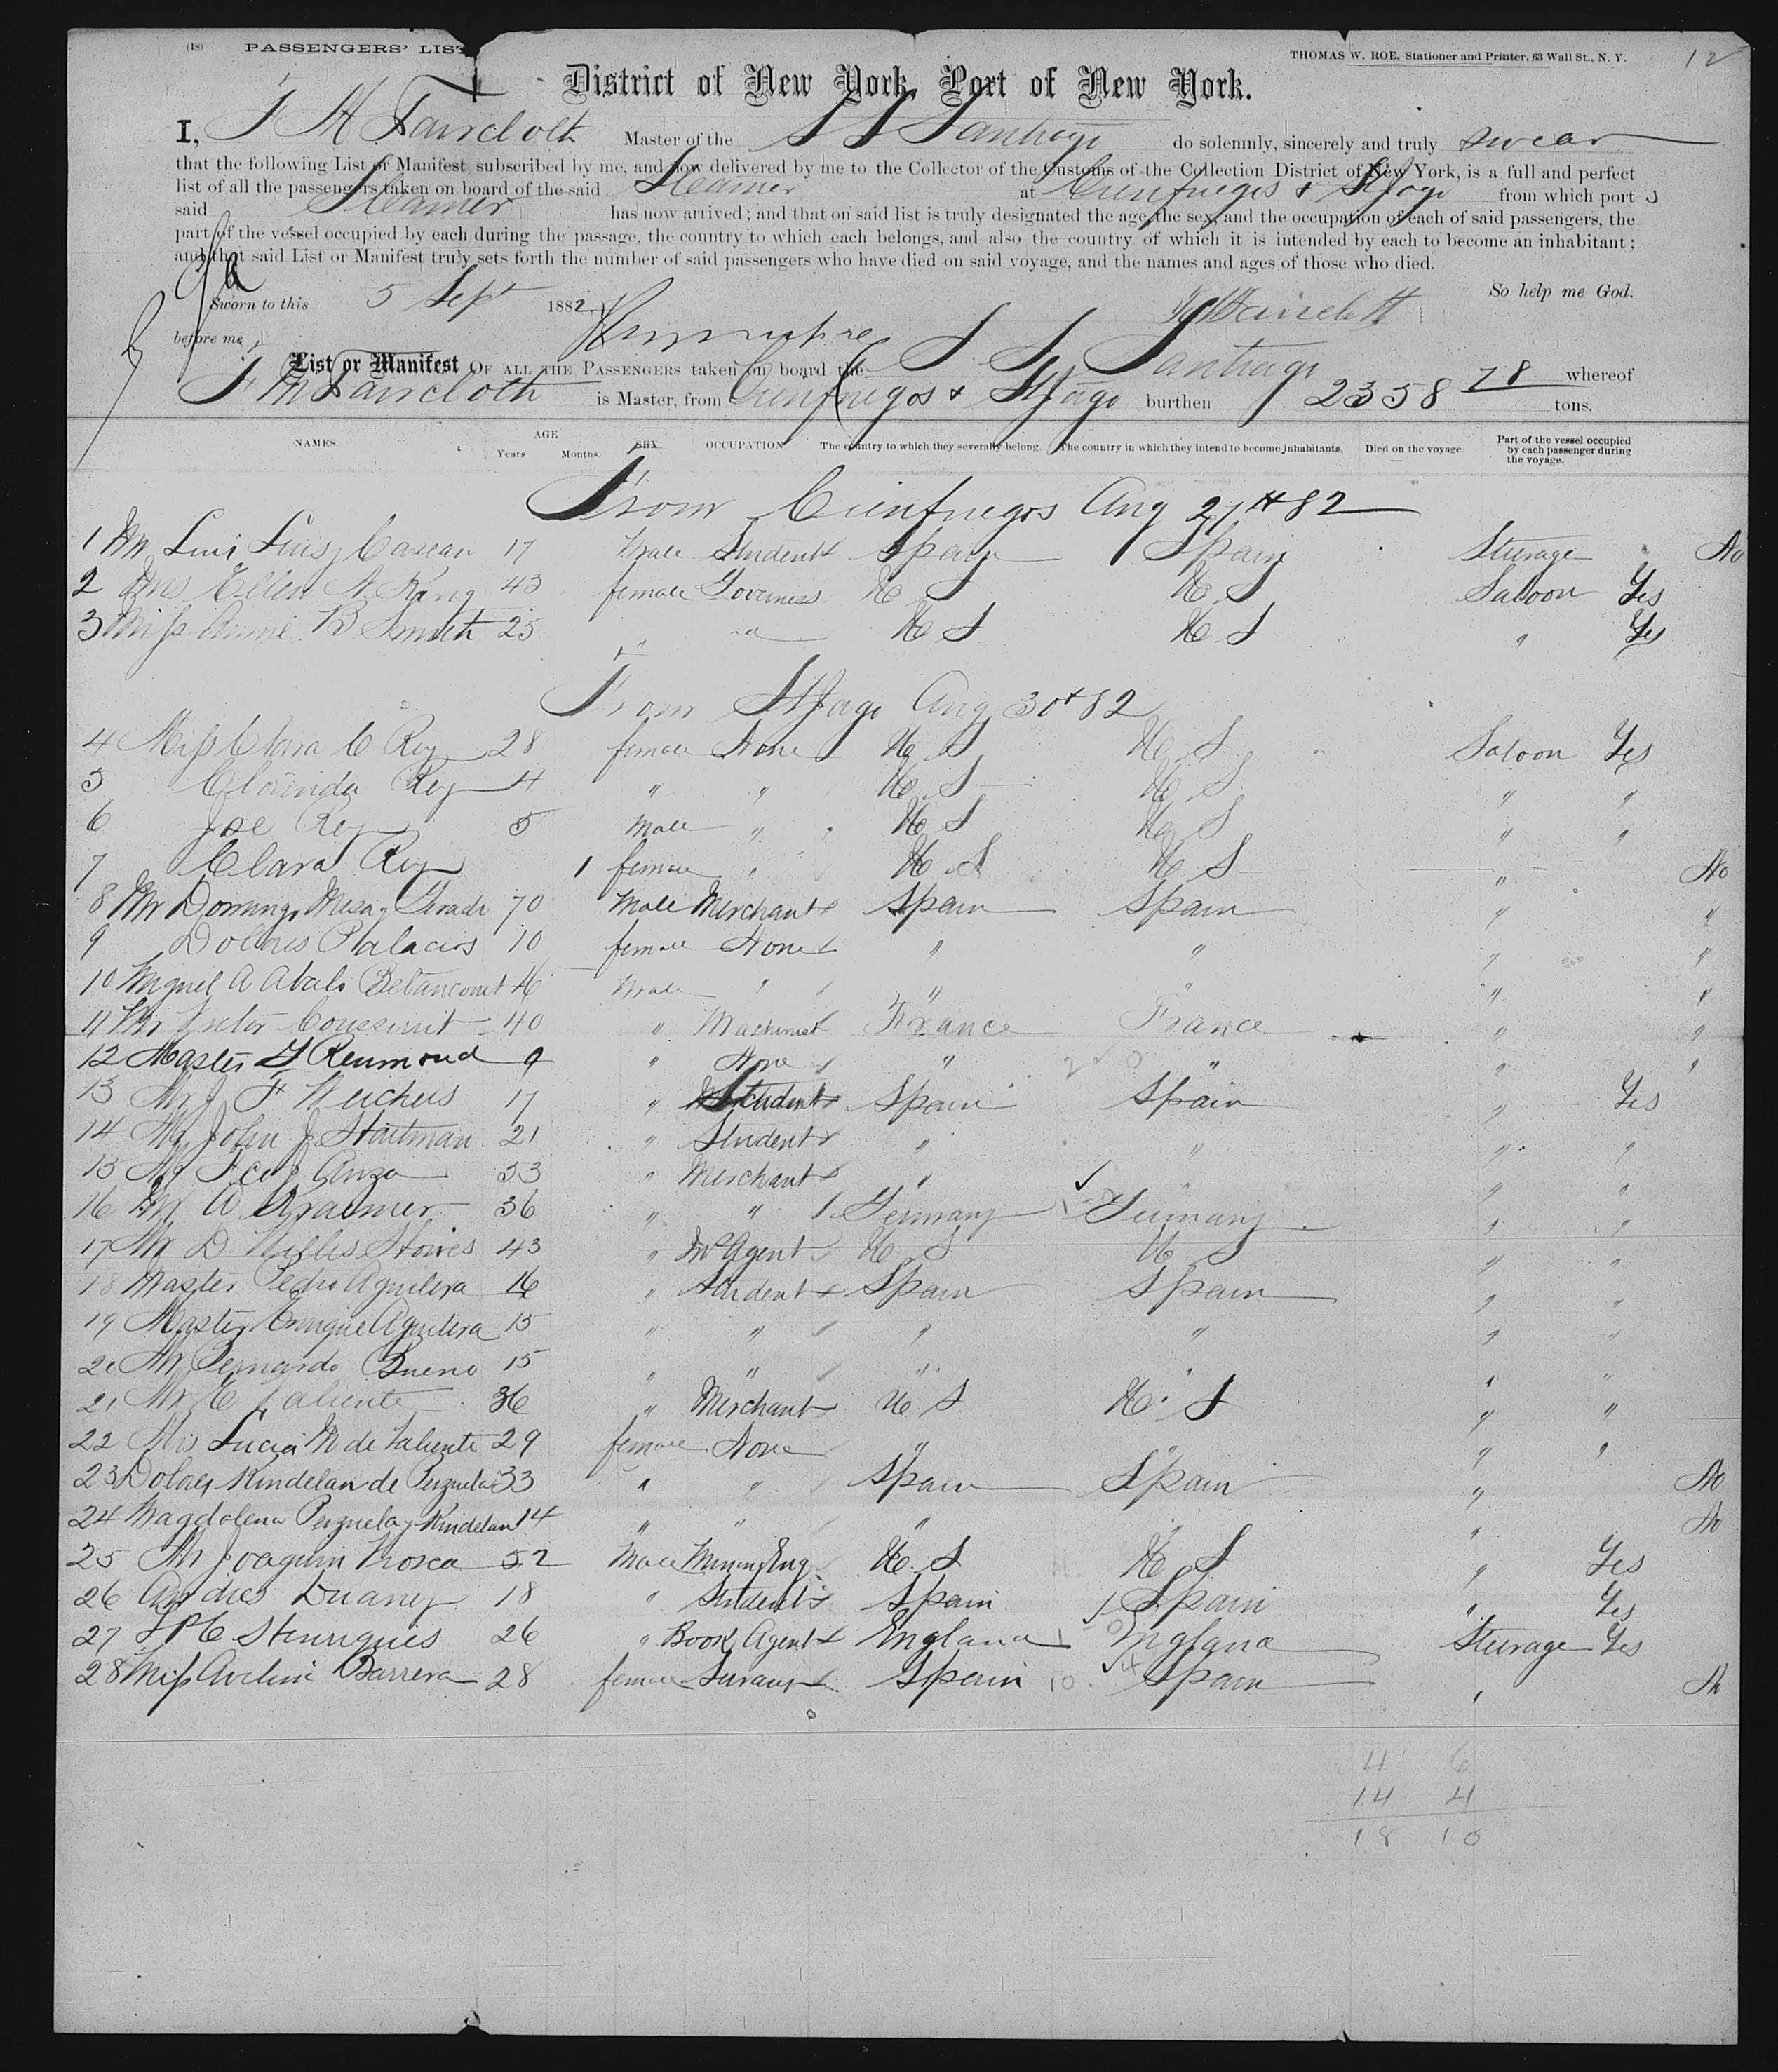 (18) PASSENGERS' LIST
THOMAS W. ROE, Stationer and Printer, 63 Wall St., N. Y.
12
District of New York, Port of New York.
I, F M Faircloth Master of the S S Santiago do solemnly, sincerely and truly swear
that the following List or Manifest subscribed by me, and now delivered by me to the Collector of the Customs of the Collection District of New York, is a full and perfect
list of all the passengers taken on board of the said Steamer at Cienfuegos + StJago from which port s
said Steamer has now arrived; and that on said list is truly designated the age, the sex, and the occupation of each of said passengers, the
part of the vessel occupied by each during the passage, the country to which each belongs, and also the country of which it is intended by each to become an inhabitant;
and that said List or Manifest truly sets forth the number of said passengers who have died on said voyage, and the names and ages of those who died.
So help me God.
Sworn to this 5 Sept 1882, F M Faircloth
before me
List or Manifest OF ALL THE PASSENGERS taken on board the S. S. Santiago whereof
F M Faircloth is Master, from Cienfuegos + StJago burthen 2358 78 tons.
NAMES. AGE Years Months SEX. OCCUPATION The country to which they severally belong. The country in which they intend to become inhabitants. Died on the voyage. Part of the vessel occupied by each passenger during the voyage.
From Cienfuegos Aug 27th 82
1 Mr Luis Luis y Caseau 17 Male Student Spain Spain Steerage No
2 Mrs Ellen A King 43 female Governess U S U S Saloon Yes
3 Miss Annie B Smith 25 " " U S U S " Yes
From StJago Aug 30th 82
4 Miss Clara C Rey 28 female None U S U S Saloon Yes
5 Clorinda Rey 4 " " U S U S " "
6 Jose Rey 5 Male " U S U S " "
7 Clara Rey 1 female " U S U S " No
8 Mr Domingo Mesa y 70 Male Merchant Spain Spain " "
9 Dolores Palacios 10 female None " " " "
10 Miguel A Abalo Betancourt 46 Male " " " " "
11 Mr Victor 40 " Machinist France France " "
12 Master F Reumond 9 " None " " " "
13 Mr J F 17 " Student Spain Spain " Yes
14 Mr John J 21 " Student " " " "
15 Mr Fco J Anzo 53 " Merchant " " " "
16 Mr A Kraemer 36 " " Germany Germany " "
17 Mr D Willis 43 " Agent U S U S " "
18 Master Pedro Aguilera 16 " Student Spain Spain " "
19 Master Enrique Aguilera 15 " " " " " "
20 Mr Bernardo Bueno 15 " " " " " "
21 Mr E Valiente 36 " Merchant U S U S " "
22 Mrs Lucia M de Valiente 29 female None " " " "
23 Dolores Kindelan de Pezuela 33 " " Spain Spain " No
24 Magdalena Pezuela y Kindelan 14 " " " " " No
25 Mr Joaquin 52 Male Mining Eng. U. S U S " Yes
26 Andres Duany 18 " Student Spain Spain " Yes
27 Henriques 26 " Book Agent England England Steerage Yes
28 Miss Barrera 28 female Servant Spain 10 Spain " No
4 6
14 4
18 10